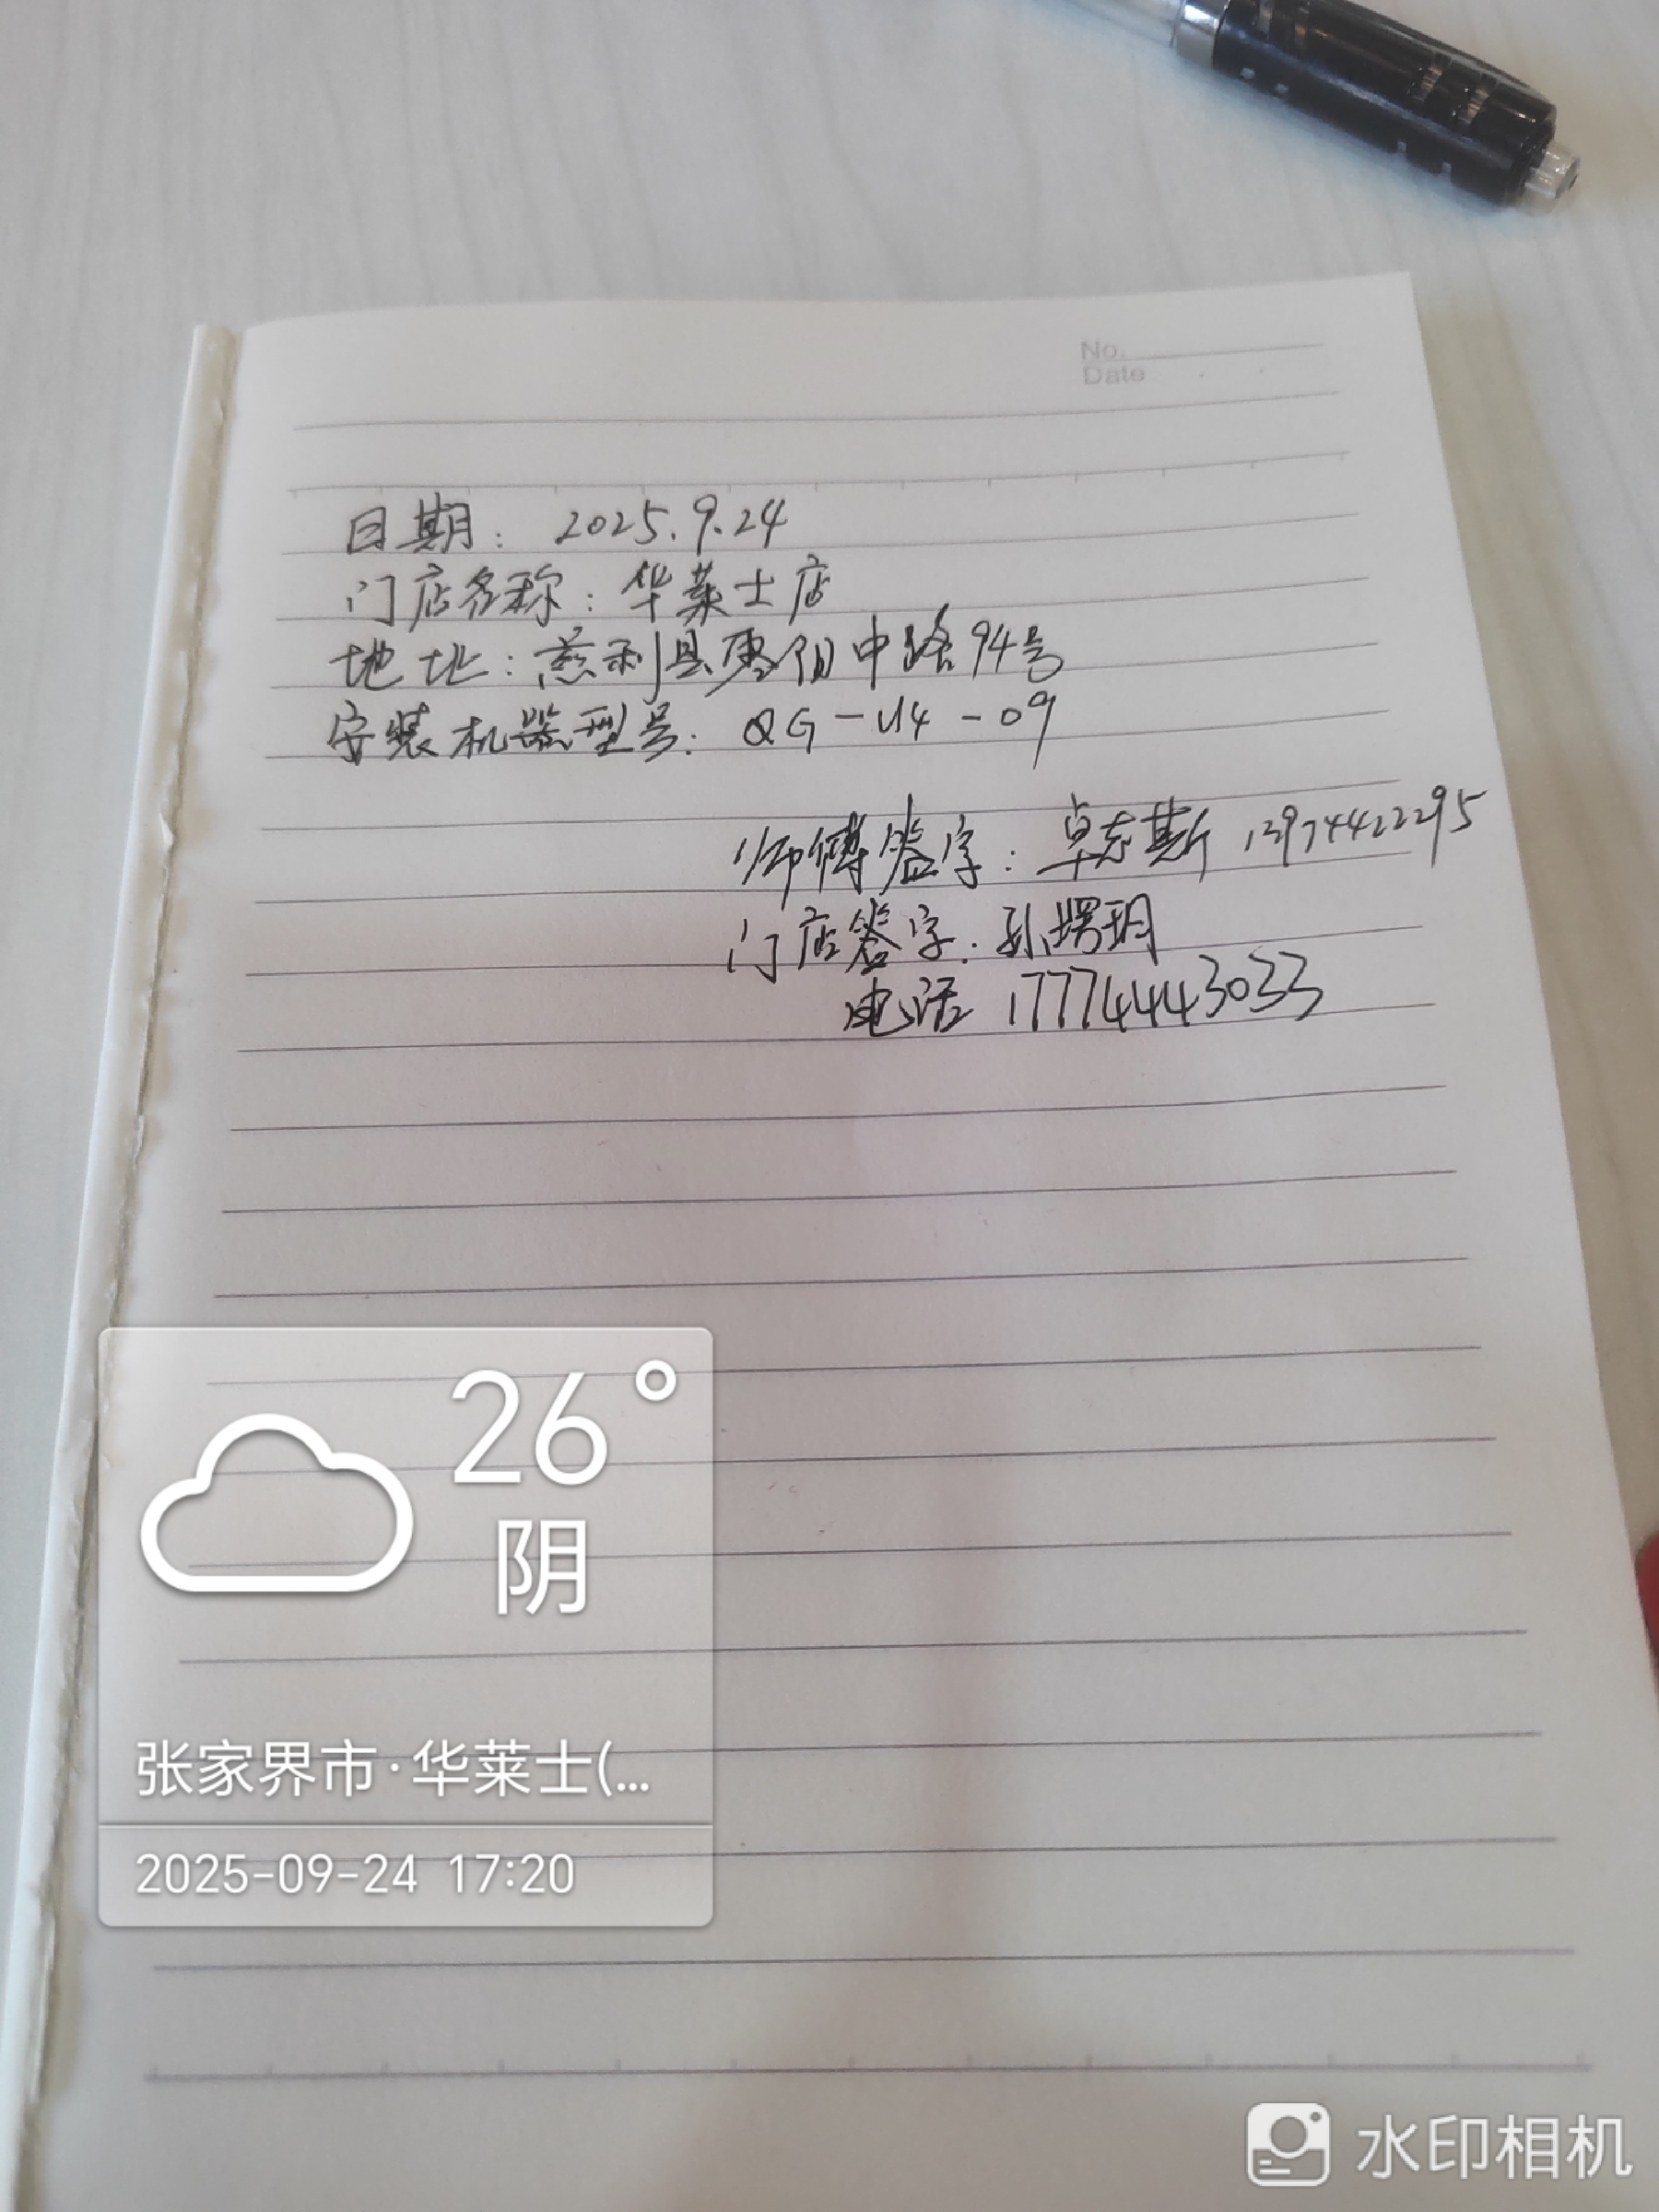 No.
Date
日期: 2025.9.24
门店名称: 华莱士店
地址: 慈利县零阳中路94号
安装机器型号: QG-U4-09
师傅签字: 卓志斯 13974422295
门店签字: 孙堮玥
电话 17774443033
26°
阴
张家界市·华莱士(...
2025-09-24 17:20
水印相机